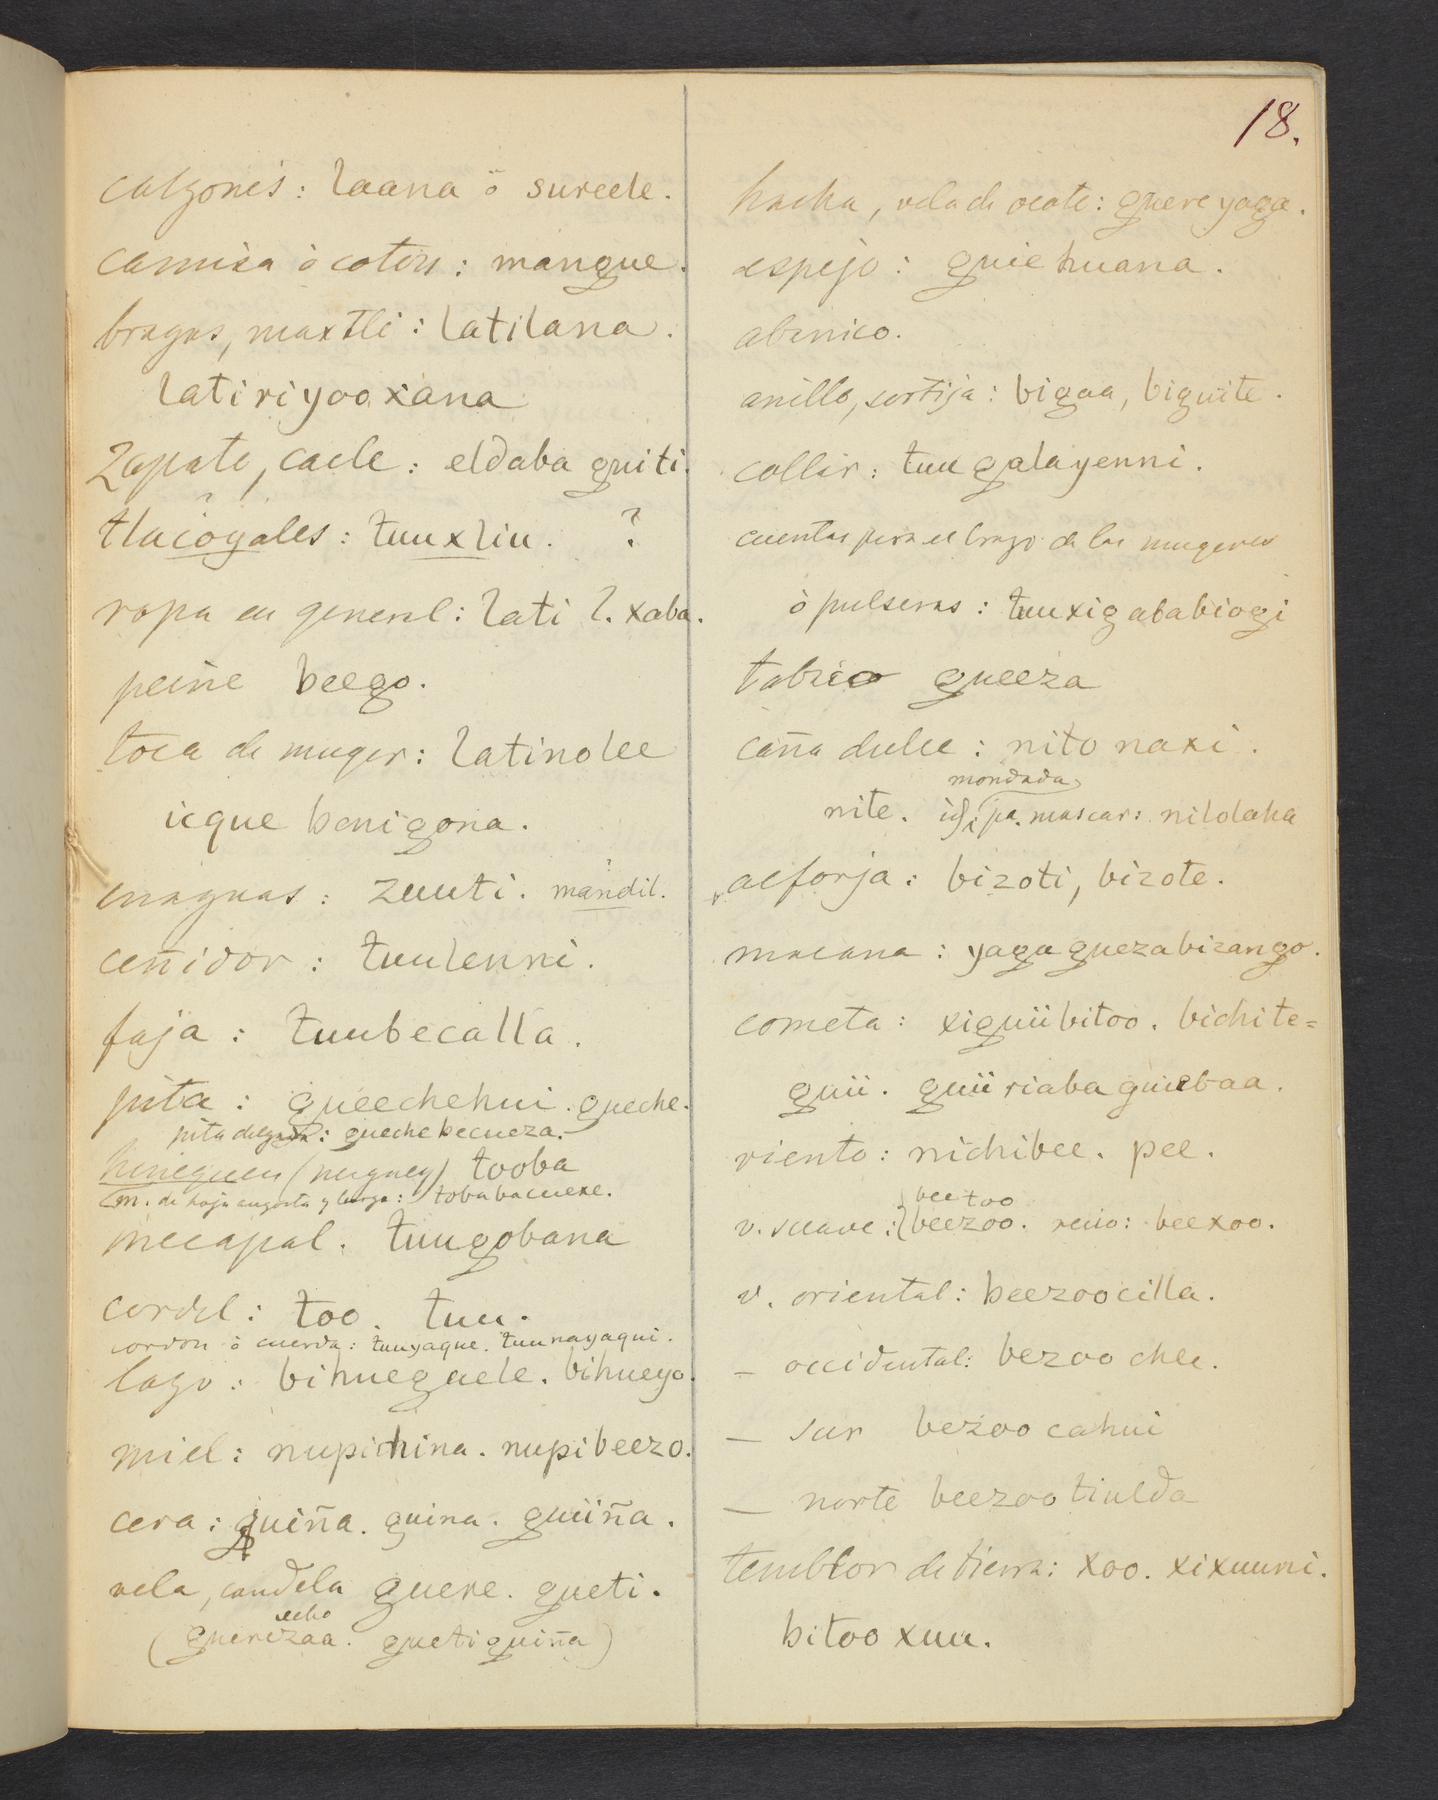 18.
calzones: laana ò sureele.
camisa ò coton: mangue.
bragas, maxtli: latilana.
latiriyooxana
Zapato, cacle: eldaba guiti.
tlacoyales: tuuxliu. ?
ropa en general: lati l. xaba.
peine beego.
toca de muger: latinolee
icque benigona.
enaguas: zuuti. mandil.
ceñidor: tuulenni.
faja: tuubecalla.
pita: gueechehui. gueche.
pita delgada: gueche becueza.
henequen (maguey) tooba
(m. de hoja angosta y larga: tobabacuexe.
mecapal. tuugobana
cordel: too. tuu.
cordon ò cuerda: tuuyaque. tuunayaqui.
lazo: bihueguele. bihueyo.
miel: nupichina. nupibeezo.
cera: guiña. guina. guiiña.
vela, candela guere. gueti.
sebo
(guerezaa. guetiguiña)
hacha, vela de ocote: guereyaga.
espejo: guiehuana.
abanico.
anillo, sortija: bigaa, biguite.
collar: tuugalayenni.
cuentas para el brazo de las mugeres
ò pulseras: tuuxigababiogi
tabaco gueeza
caña dulce: nito naxi.
mondada
nite. id. pa. mascar: nitolaha
alforja: bizoti, bizote.
macana: yagaguezabizango.
cometa: xiguiibitoo. bichite=
guii. guiiriabaguiebaa.
viento: nichibee. pee.
bee too
v. suave: beezoo. recio: beexoo.
v. oriental: beezoocilla.
— occidental: bezoo chee.
— sur bezoo cahui
— norte beezootiulda
temblor de tierra: xoo. xixuuni.
bitoo xuu.